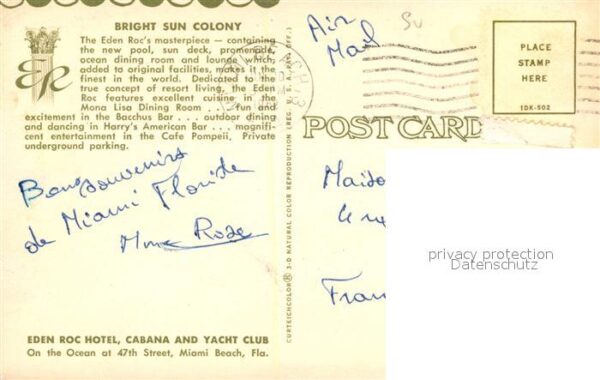 BRIGHT SUN COLONY
The Eden Roc's masterpiece — containing
the new pool, sun deck, promenade,
ocean dining room and lounge which,
added to original facilities, makes it the
finest in the world. Dedicated to the
true concept of resort living, the Eden
Roc features excellent cuisine in the
Mona Lisa Dining Room . . . fun and
excitement in the Bacchus Bar . . . outdoor dining
and dancing in Harry's American Bar . . . magnifi-
cent entertainment in the Cafe Pompeii, Private
underground parking.
ER
Bons souvenirs
de Miami Floride
Mme Rose
EDEN ROC HOTEL, CABANA AND YACHT CLUB
On the Ocean at 47th Street, Miami Beach, Fla.
CURTEICHCOLOR® 3-D NATURAL COLOR REPRODUCTION (REG. U.S.A. PAT. OFF.)
Air
Mail
PLACE
STAMP
HERE
1DK-502
POST CARD
Fran
privacy protection
Datenschutz